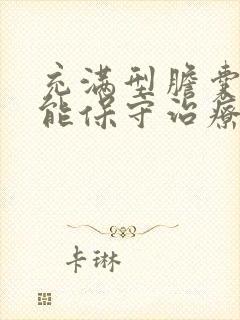 充满型胆囊
能保守治疗
卡琳